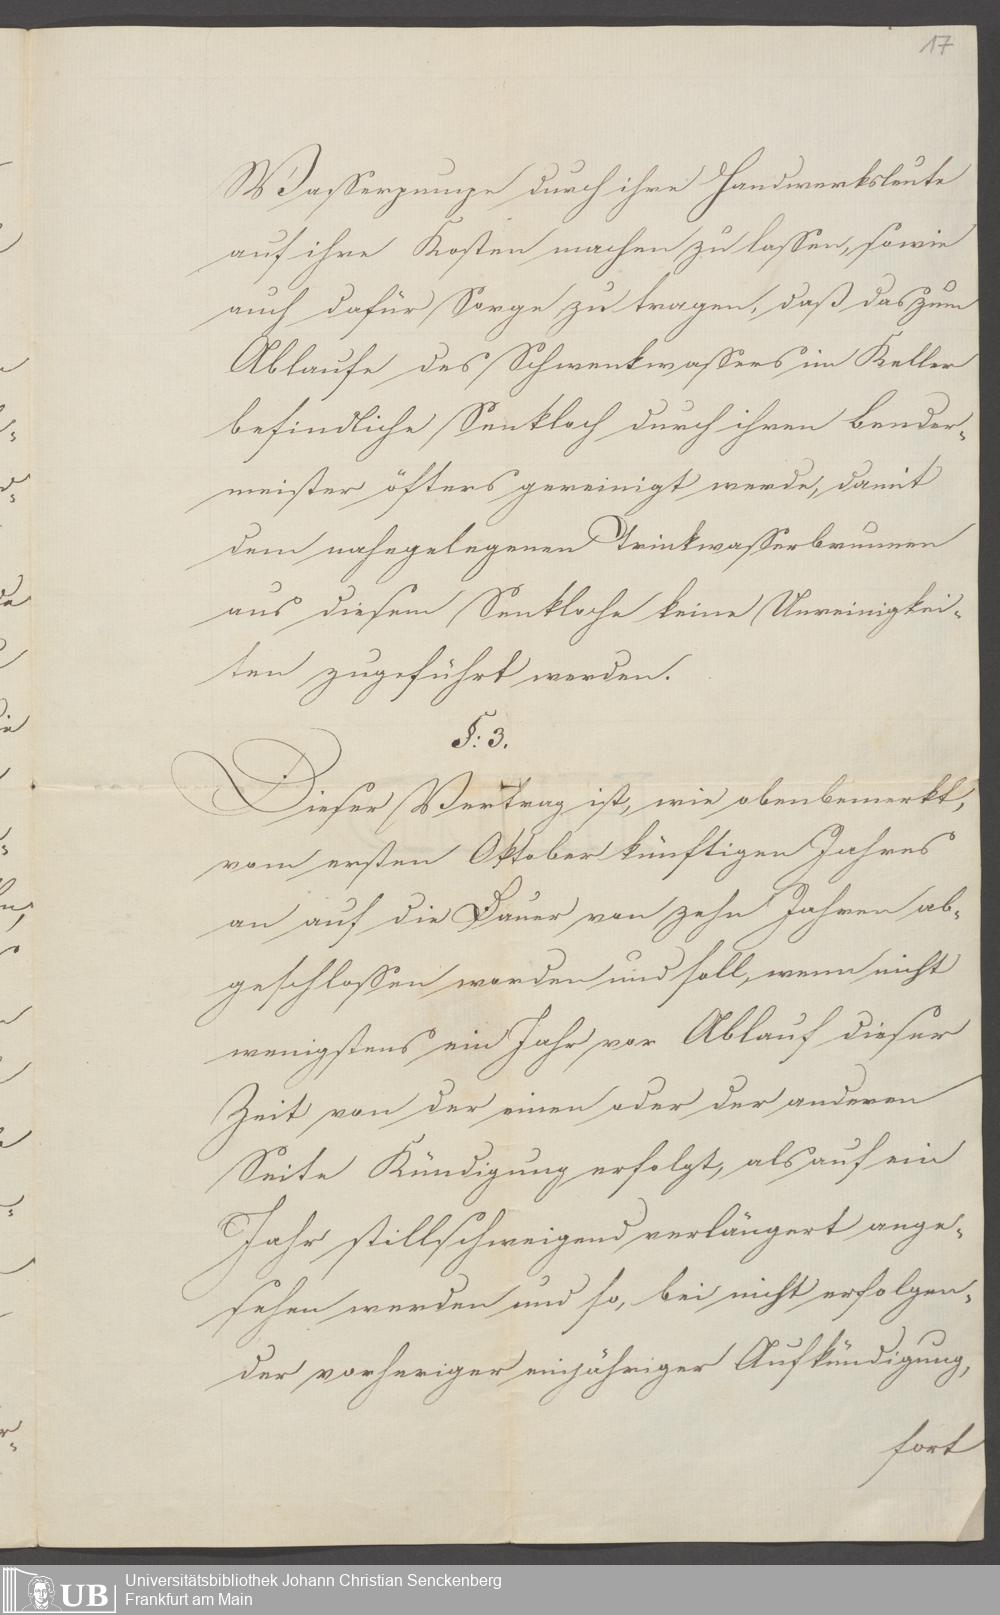 17
Wasserpumpe durch ihre Handwerksleute
auf ihre Kosten machen zu lassen, sowie
auch dafür Sorge zu tragen, daß das zum
Ablaufe des Schwenkwassers im Keller
befindliche Senkloch durch ihren Bender-
meister öfters gereinigt werde, damit
dem nahegelegenen Trinkwasserbrunnen
aus diesem Senkloche keine Unreinigkei-
ten zugeführt werden.
§: 3.
Dieser Vertrag ist, wie obenbemerkt,
vom ersten Oktober künftigen Jahres
an auf die Dauer von zehn Jahren ab-
geschlossen worden und soll, wenn nicht
wenigstens ein Jahr vor Ablauf dieser
Zeit von der einen oder der anderen
Seite Kündigung erfolgt, als auf ein
Jahr stillschweigend verlängert ange-
sehen werden und so, bei nicht erfolgen-
der vorheriger einjähriger Aufkündigung,
fort
UB
Universitätsbibliothek Johann Christian Senckenberg
Frankfurt am Main